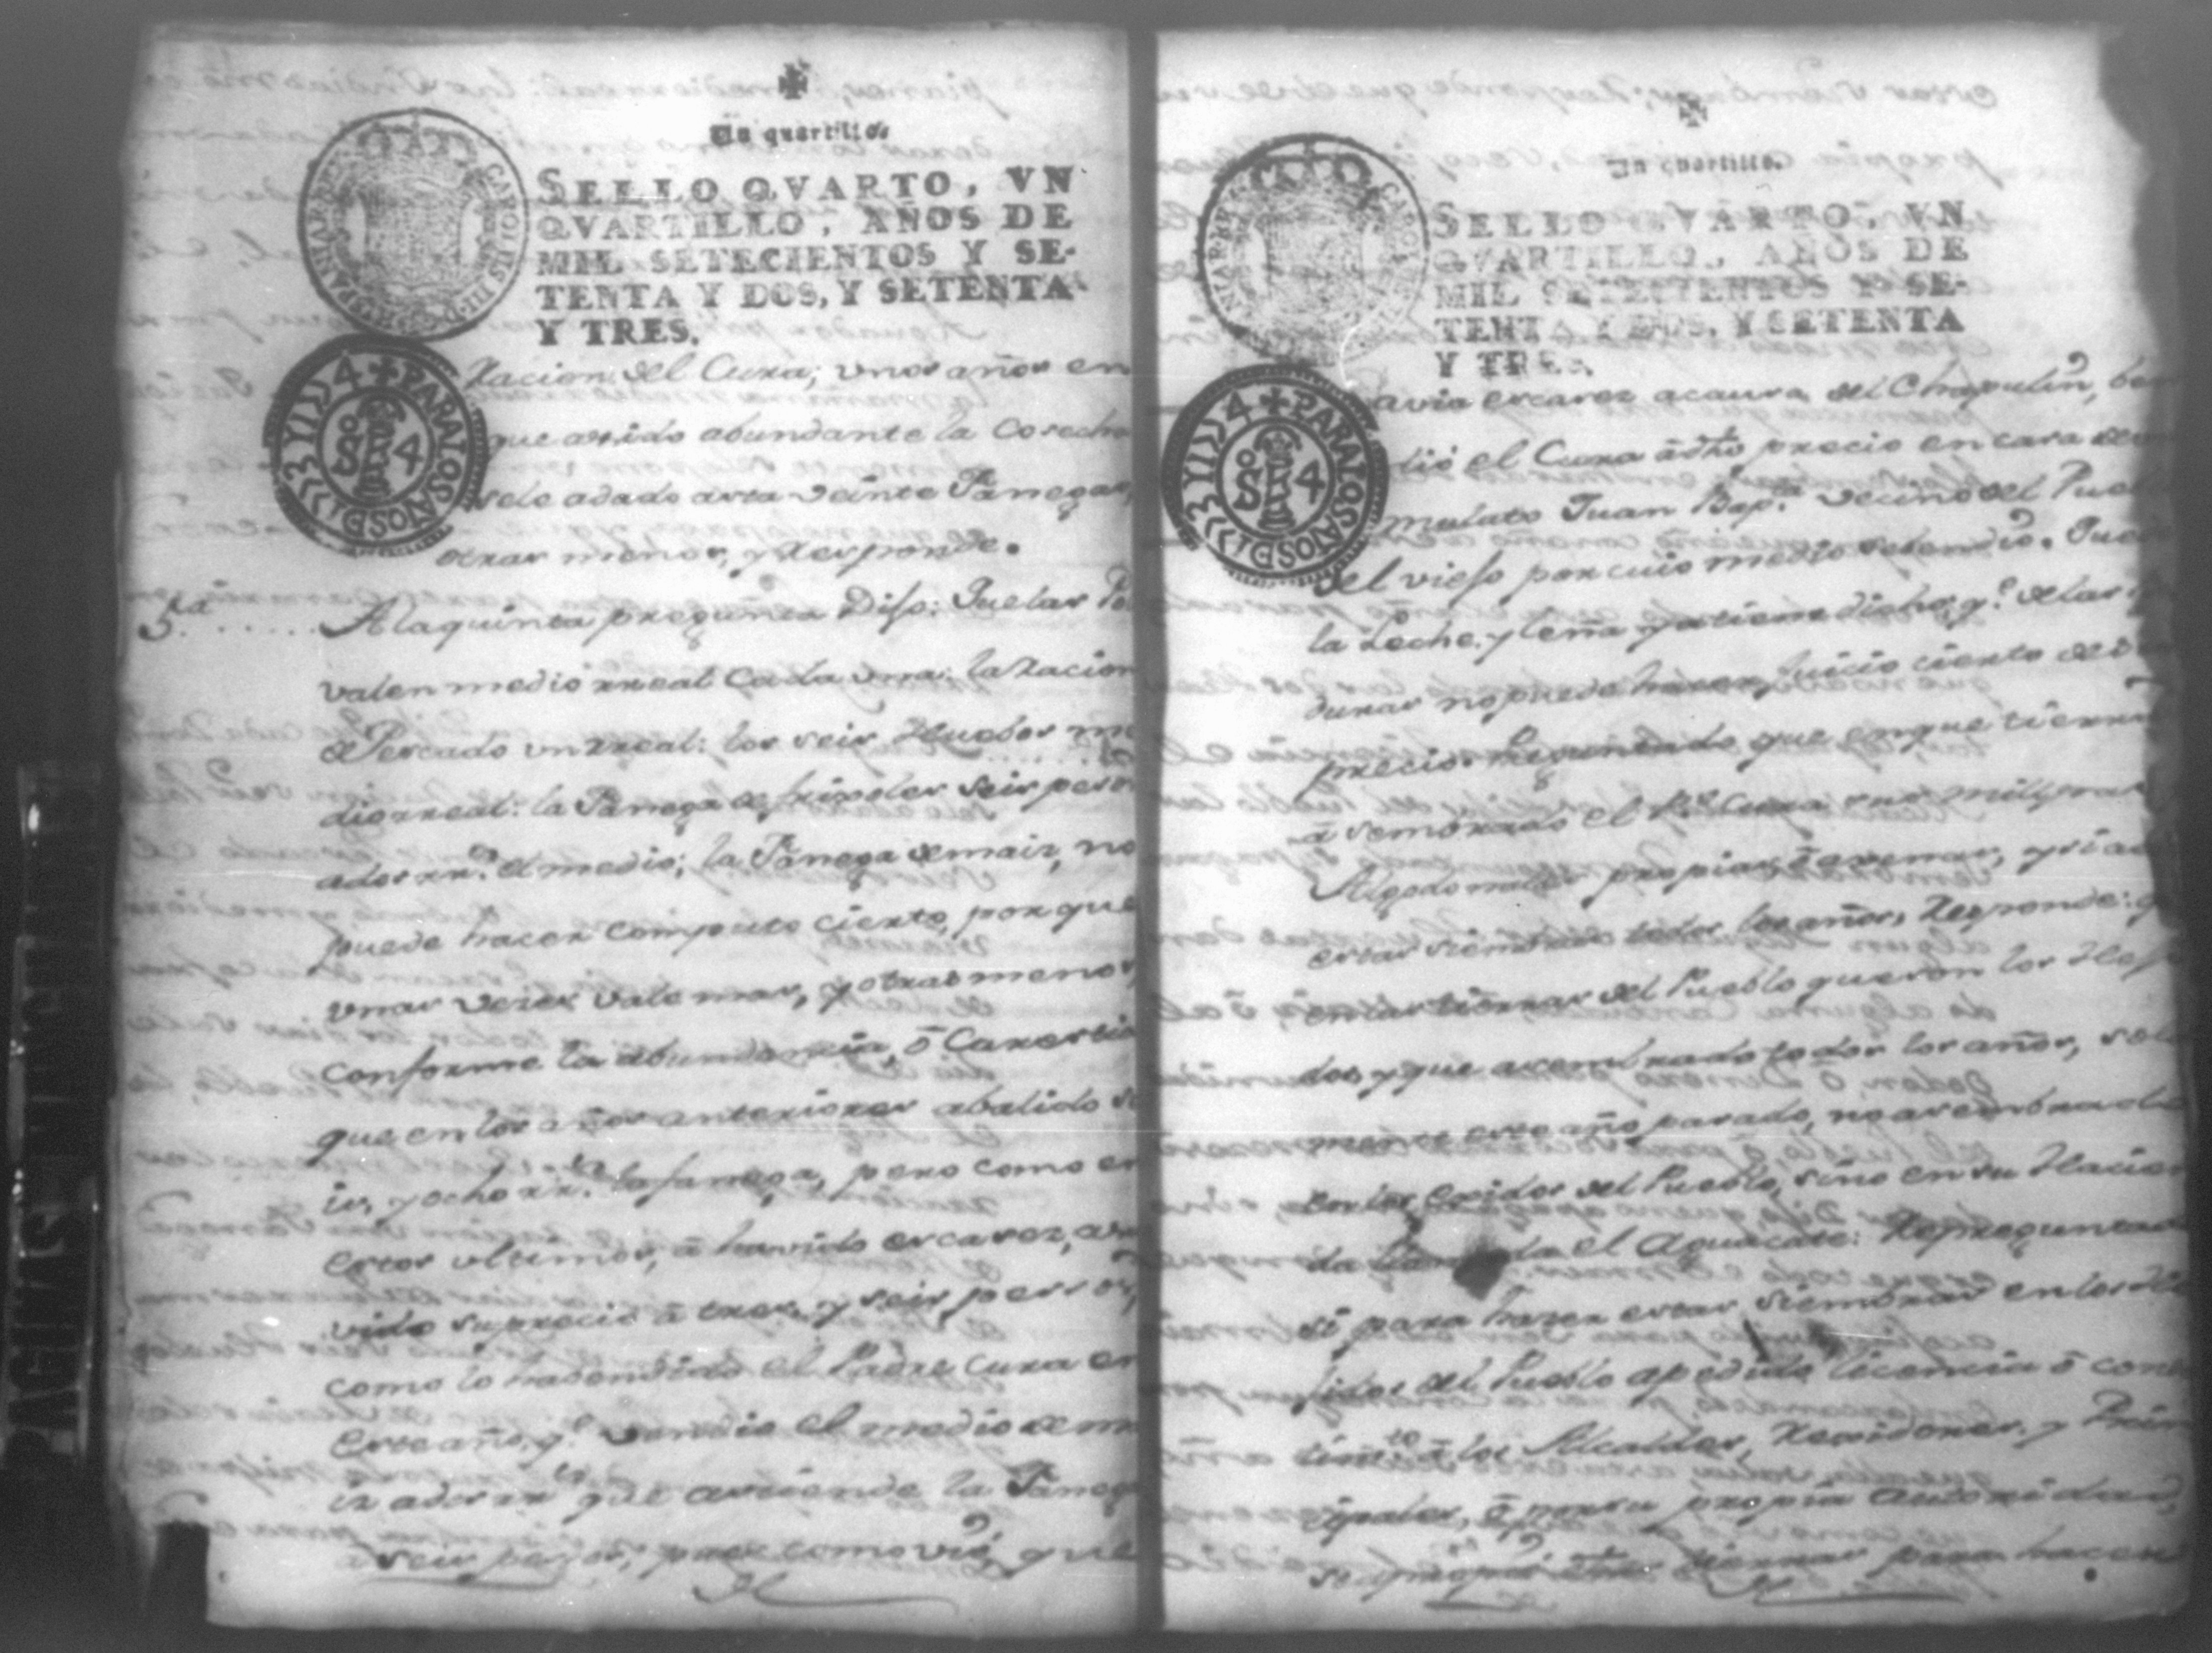 Un quartillo
SELLO QVARTO, VN
QVARTILLO, AÑOS DE
MIL SETECIENTOS Y SE-
TENTA Y DOS, Y SETENTA
Y TRES.
CAROLUS III D G HISPANIAR REX
PARA LOS AÑOS D 1773 Y 1774
SS 4
Racion del Cura; unos años en
que asido abundante la Cosecha
sele adado asta veinte Fanegas,
otras menos, y Responde.
5.ª Alaquinta pregunta Dijo: Quelas
valen medio rreal Cada una: la Racion
de Pescado un rreal: los seis Huebos me
dio rreal: la Fanega de frixoles seis pesos
ados rr.s el medio; la Fanega de mais, no
puede hacer computo cierto, porque
unas veses vale mas, y otras menos,
conforme la abundancia, ô Carestia
que en los años anteriores abalido se
is, y ocho rr.s la fanega, pero como en
estos ultimos, â havido escases, asu
vido su precio â tres, y seis pesos,
como lo habendido el Padre Cura en
este año, q.e vendio el medio de ma
iz ados rr.s que asciende la Fanega
a seis pesos, pues como vió, que
Un quartillo.
SELLO QVARTO, VN
QVARTILLO, AÑOS DE
MIL SETECIENTOS Y SE-
TENTA Y DOS, Y SETENTA
Y TRES.
PARA LOS AÑOS D 1773 Y 1774
SS 4
avia escases acausa del Chapulin, ben
dió el Cura âdho precio en casa de un
mulato Juan Bap.ta vecino del Pueblo
del viejo por cuio medio sebendió. Que
la Leche, y leña ya tiene dicho, q.e de las
duras no puede hacer juicio cierto de su
precio. Preguntado que en que tierras
â sembrado el P.e Cura sus milpas
Algodonales propias, ô agenas, y si a
estas siembras todos los años, Responde: q
en las tierras del Pueblo que son los Heji
dos, y que asembrado todos los años, sola
mente este año pasado, no asembrado
en los Egidos del Pueblo, sino en su Hacien
da llamada el Aguacate: Repreguntado
si para hazer estas siembras en los He
jidos del Pueblo apedido licencia ô conse
tim.to â los Alcaldes, Regidores, y Prin
sipales, ô por su propia autoridad,
se apropió dhas tierras para hacer